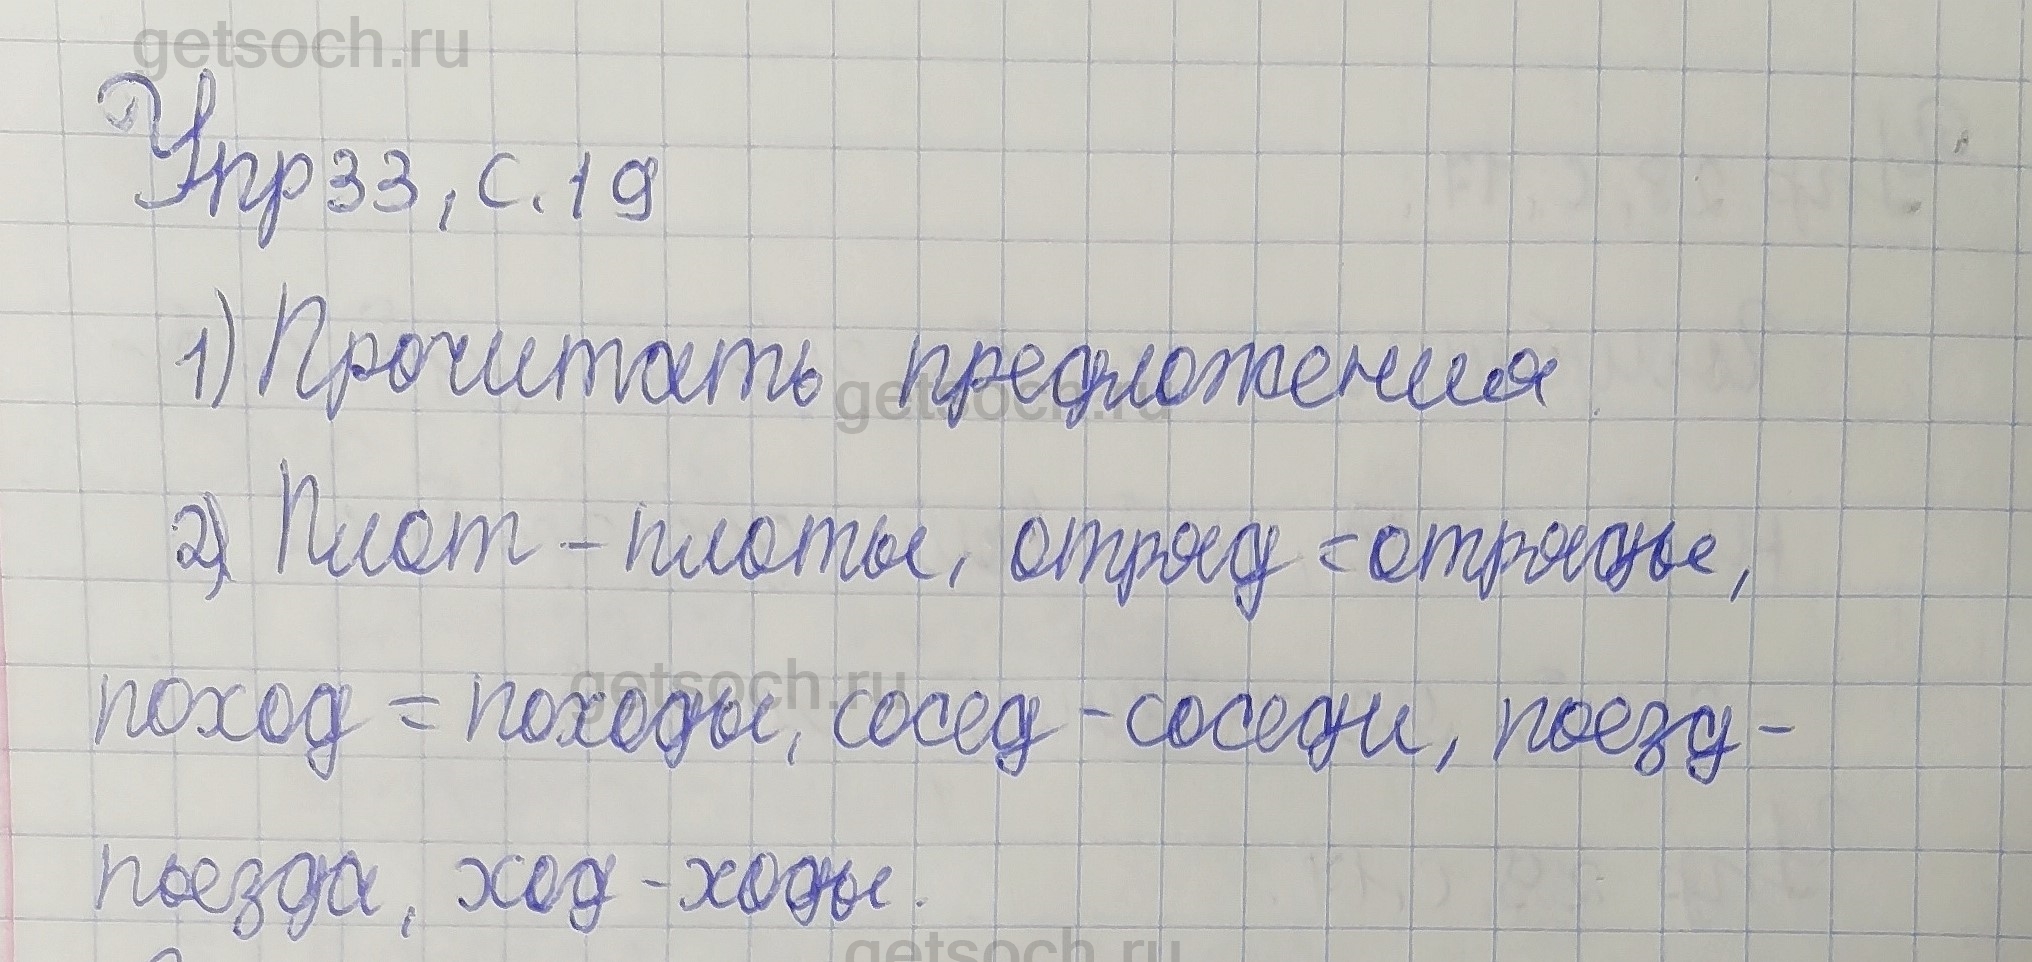 getsoch.ru
Упр 33, с. 19
1) Прочитать предложения
getsoch.ru
2) Плот - плоты, отряд = отряды,
поход = походы, сосед - соседи, поезд -
getsoch.ru
поезда, ход - ходы.
getsoch.ru